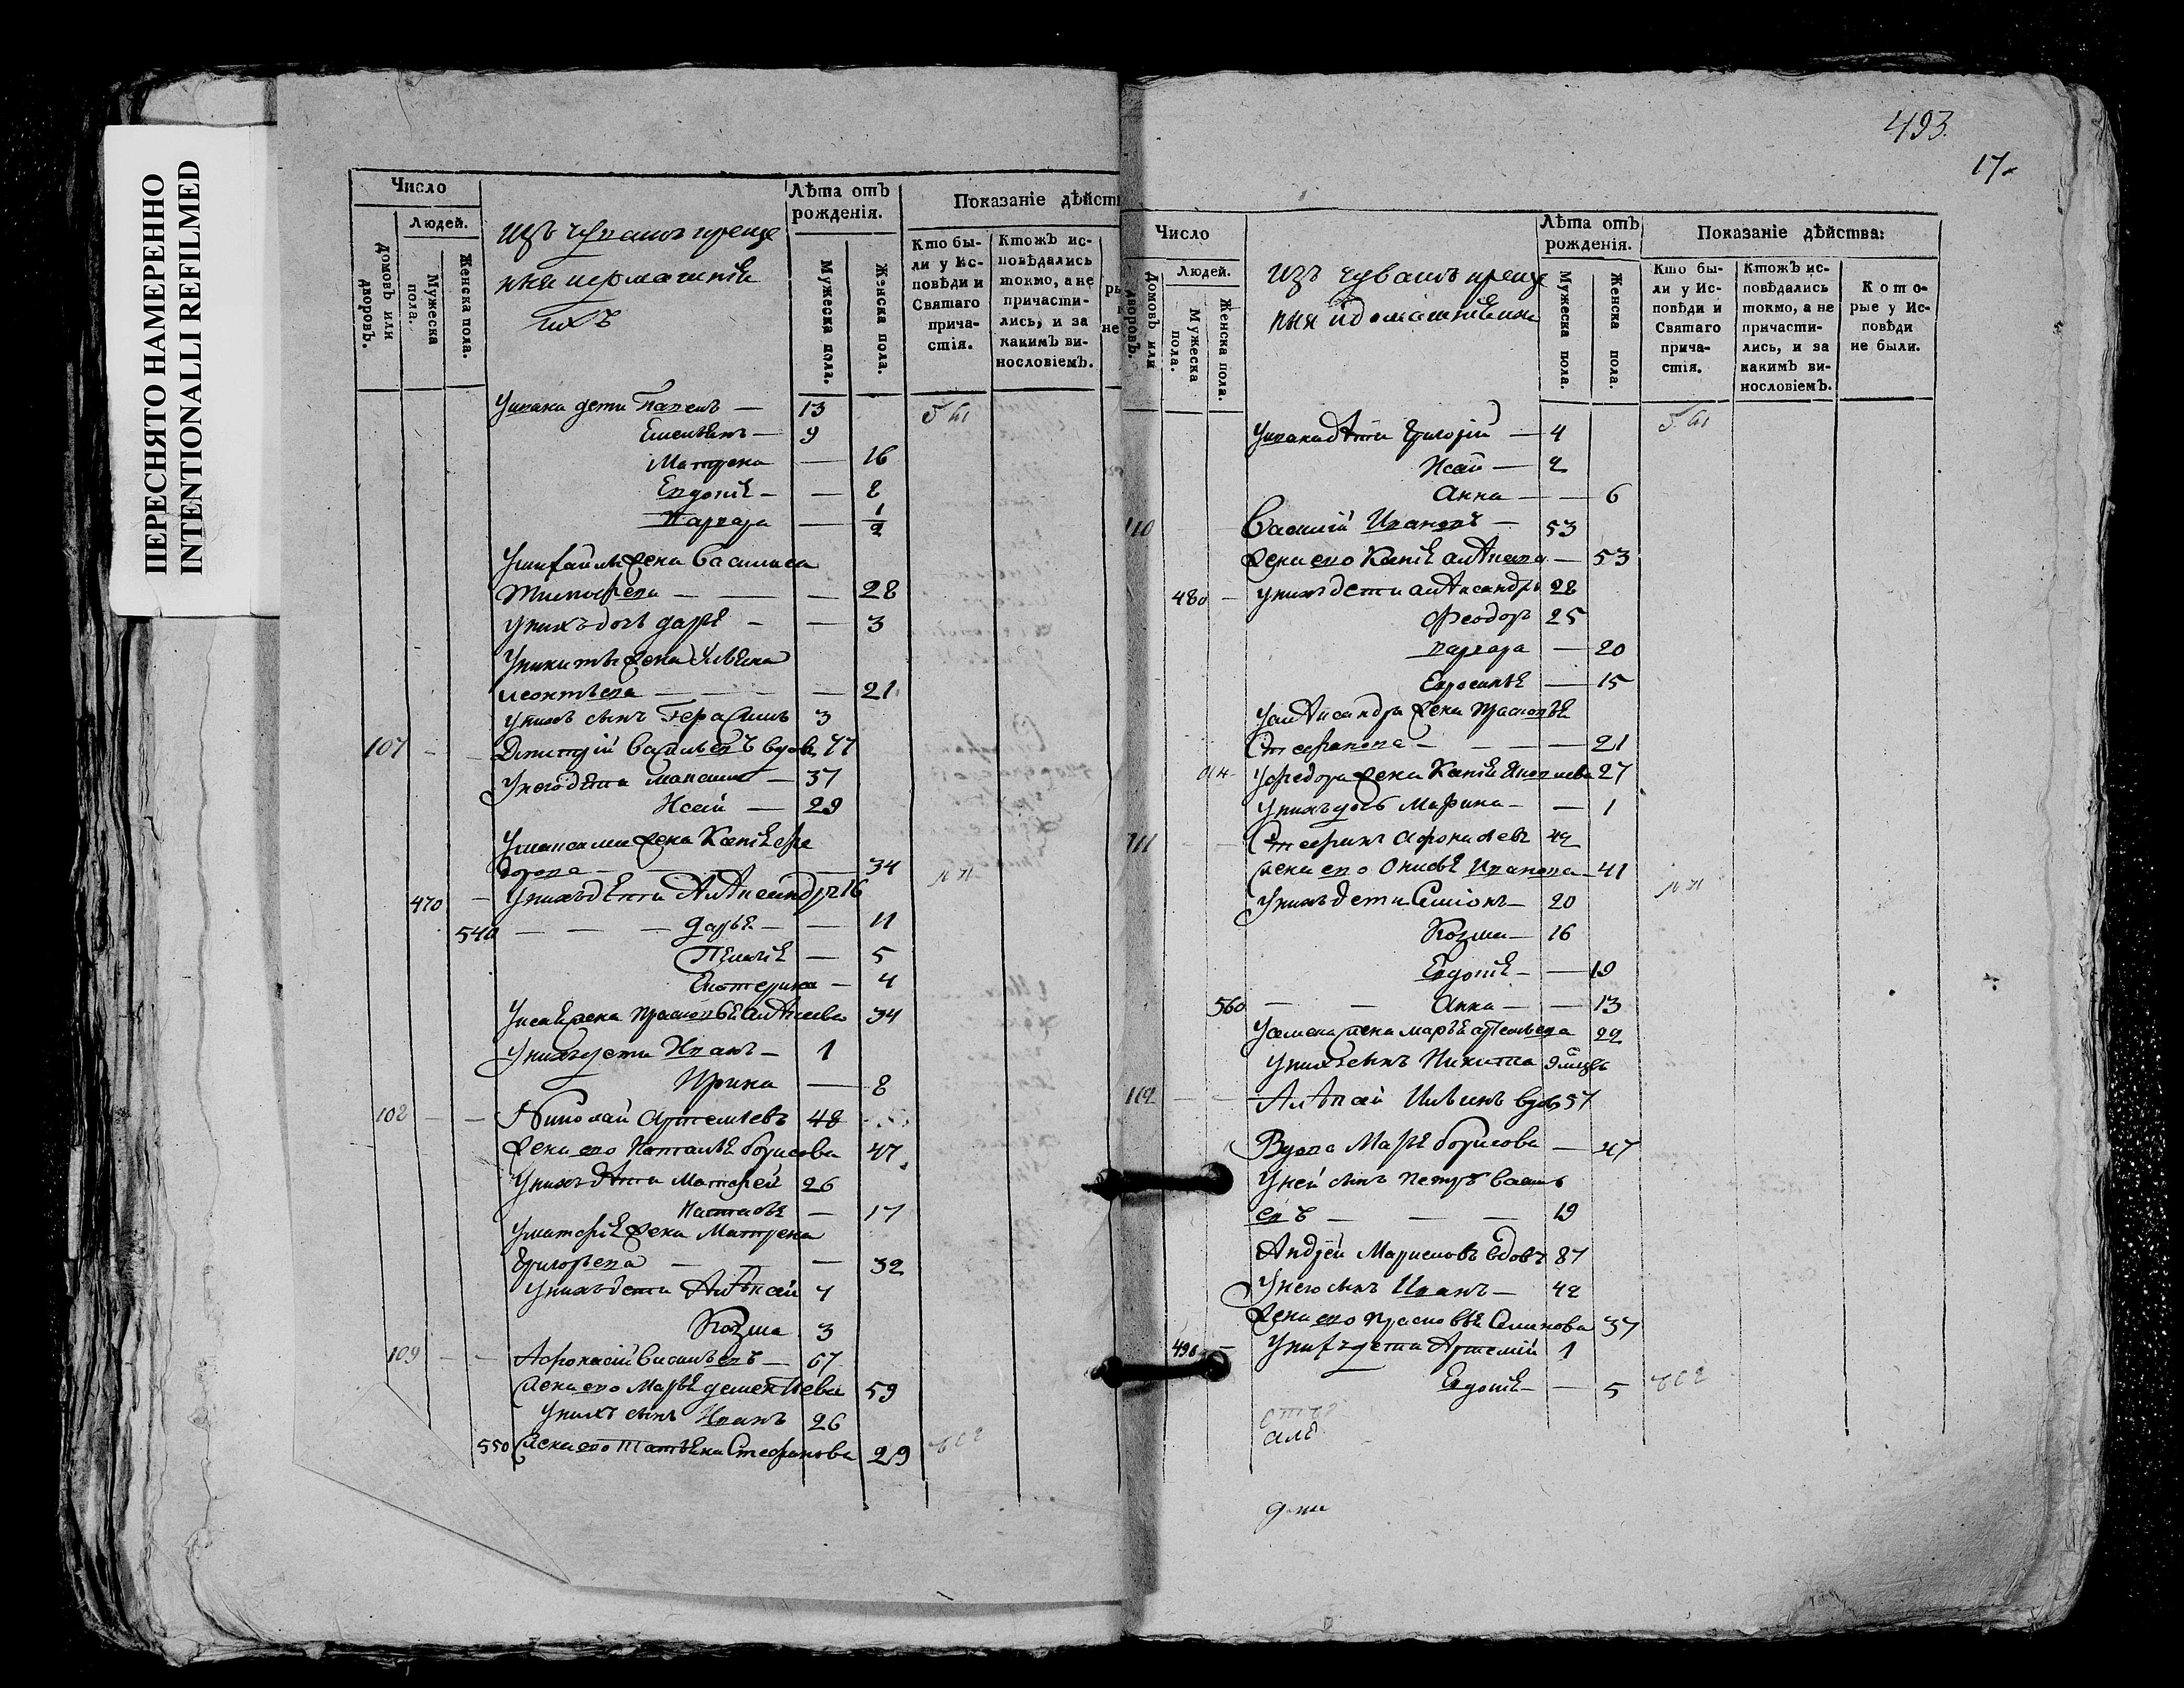 ПЕРЕСНЯТО НАМЕРЕННО
INTENTIONALLI REFILMED
Число
Людей.
Домовъ или дворовъ.
Мужеска пола.
Женска пола.
изъ чувашъ креще
ныя
Лѣта отъ рожденія.
Мужеска пола.
Женска пола.
Показаніе дѣйст
Кто бы-
ли у Ис-
повѣди и
Святаго
прича-
стія.
Ктожъ ис-
повѣдались
токмо, а не
причасти-
лись, и за
какимъ ви-
нословіемъ.
дети Павелъ — 13
Емельянъ — 9
Матрена — 16
Евдокія — — 8
Варвара — 1/2
жена Василиса
Тимофева — — — 28
у нихъ дочь Дарья — — 3
у Никиты жена Ульяна
Леонтьева — — — 21
у нихъ сынъ Герасимъ 3
107 Дмитрій Васильевъ вдовъ 77
у него дѣти Максимъ — 37
Исай — 29
у Максима жена Ксенія Фе
дорова — 34
470 у нихъ дѣти Алѣксандръ 16
540 — — — Дарья — — 11
Пелагія — 5
Екатерина — 4
у Исая жена Прасковья Алѣксева 34
у нихъ дети Иванъ — 1
Ирина — 8
108 Николай Артемьевъ 48
жена ево Наталья Борисова 47
у нихъ дѣти Матфей 26
Настасья — 17
у Матфея жена Матрена
Григорьева — — 32
у нихъ дети Алѣксай 7
Козма 3
109 Афонасій Васильевъ — 67
жена ево Марья Дементьева 59
у нихъ сынъ Иванъ 26
550 жена ево Татьяна Стефанова 29
493.
17
Число
Людей.
Домовъ или дворовъ.
Мужеска пола.
Женска пола.
изъ чувашъ креще
ныя и домашнія ихъ
Лѣта отъ рожденія.
Мужеска пола.
Женска пола.
Показаніе дѣйства:
Кто бы-
ли у Ис-
повѣди и
Святаго
прича-
стія.
Ктожъ ис-
повѣдались
токмо, а не
причасти-
лись, и за
какимъ ви-
нословіемъ.
Кото-
рые у Ис-
повѣди
не были.
дѣти Григорій — 4
Исай — 2
Анна — — 6
110 Василій Ивановъ — 53
жена ево Ксенія — 53
480 — у нихъ дети Алѣксандръ 28
Феодоръ 25
Варвара — 20
Евросинья — 15
у Алѣксандра жена Прасковья
Стефанова — — — 21
у Федора жена Ксенія Яковлева 27
у нихъ дочь Марина — — 1
111 Стефанъ Афонасьевъ 42
жена ево Онисья Иванова — 41
у нихъ дети Симіонъ — 20
Козма — 16
Евдокія — — 19
560 — — Анна — — 13
у Семена жена Марья 22
у нихъ сынъ Никита 9 мцвъ
112 Алѣксай Ильинъ вдовъ 57
Вдова Марья Борисова — 47
у ней сынъ Петръ Василь
евъ — — — 19
Андрей вдовъ 87
у него сынъ Иванъ — 42
жена ево Прасковья Семенова 37
490 — у нихъ дети Артемій 1
Евдокія — — 5